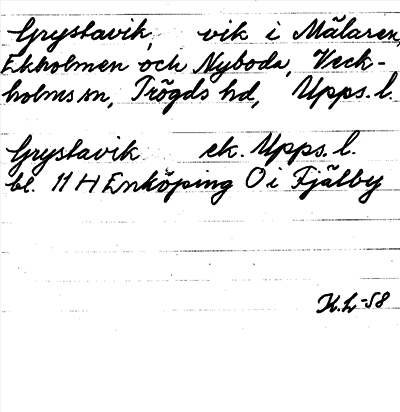 Grystavik, vik i Mälaren,
Ekholmen och Nyboda, Veck-
holms sn, Trögds hd, Upps. l.
Grystavik ek. Upps. l.
bl. 11 H Enköping O i Fjälby
K.L-58